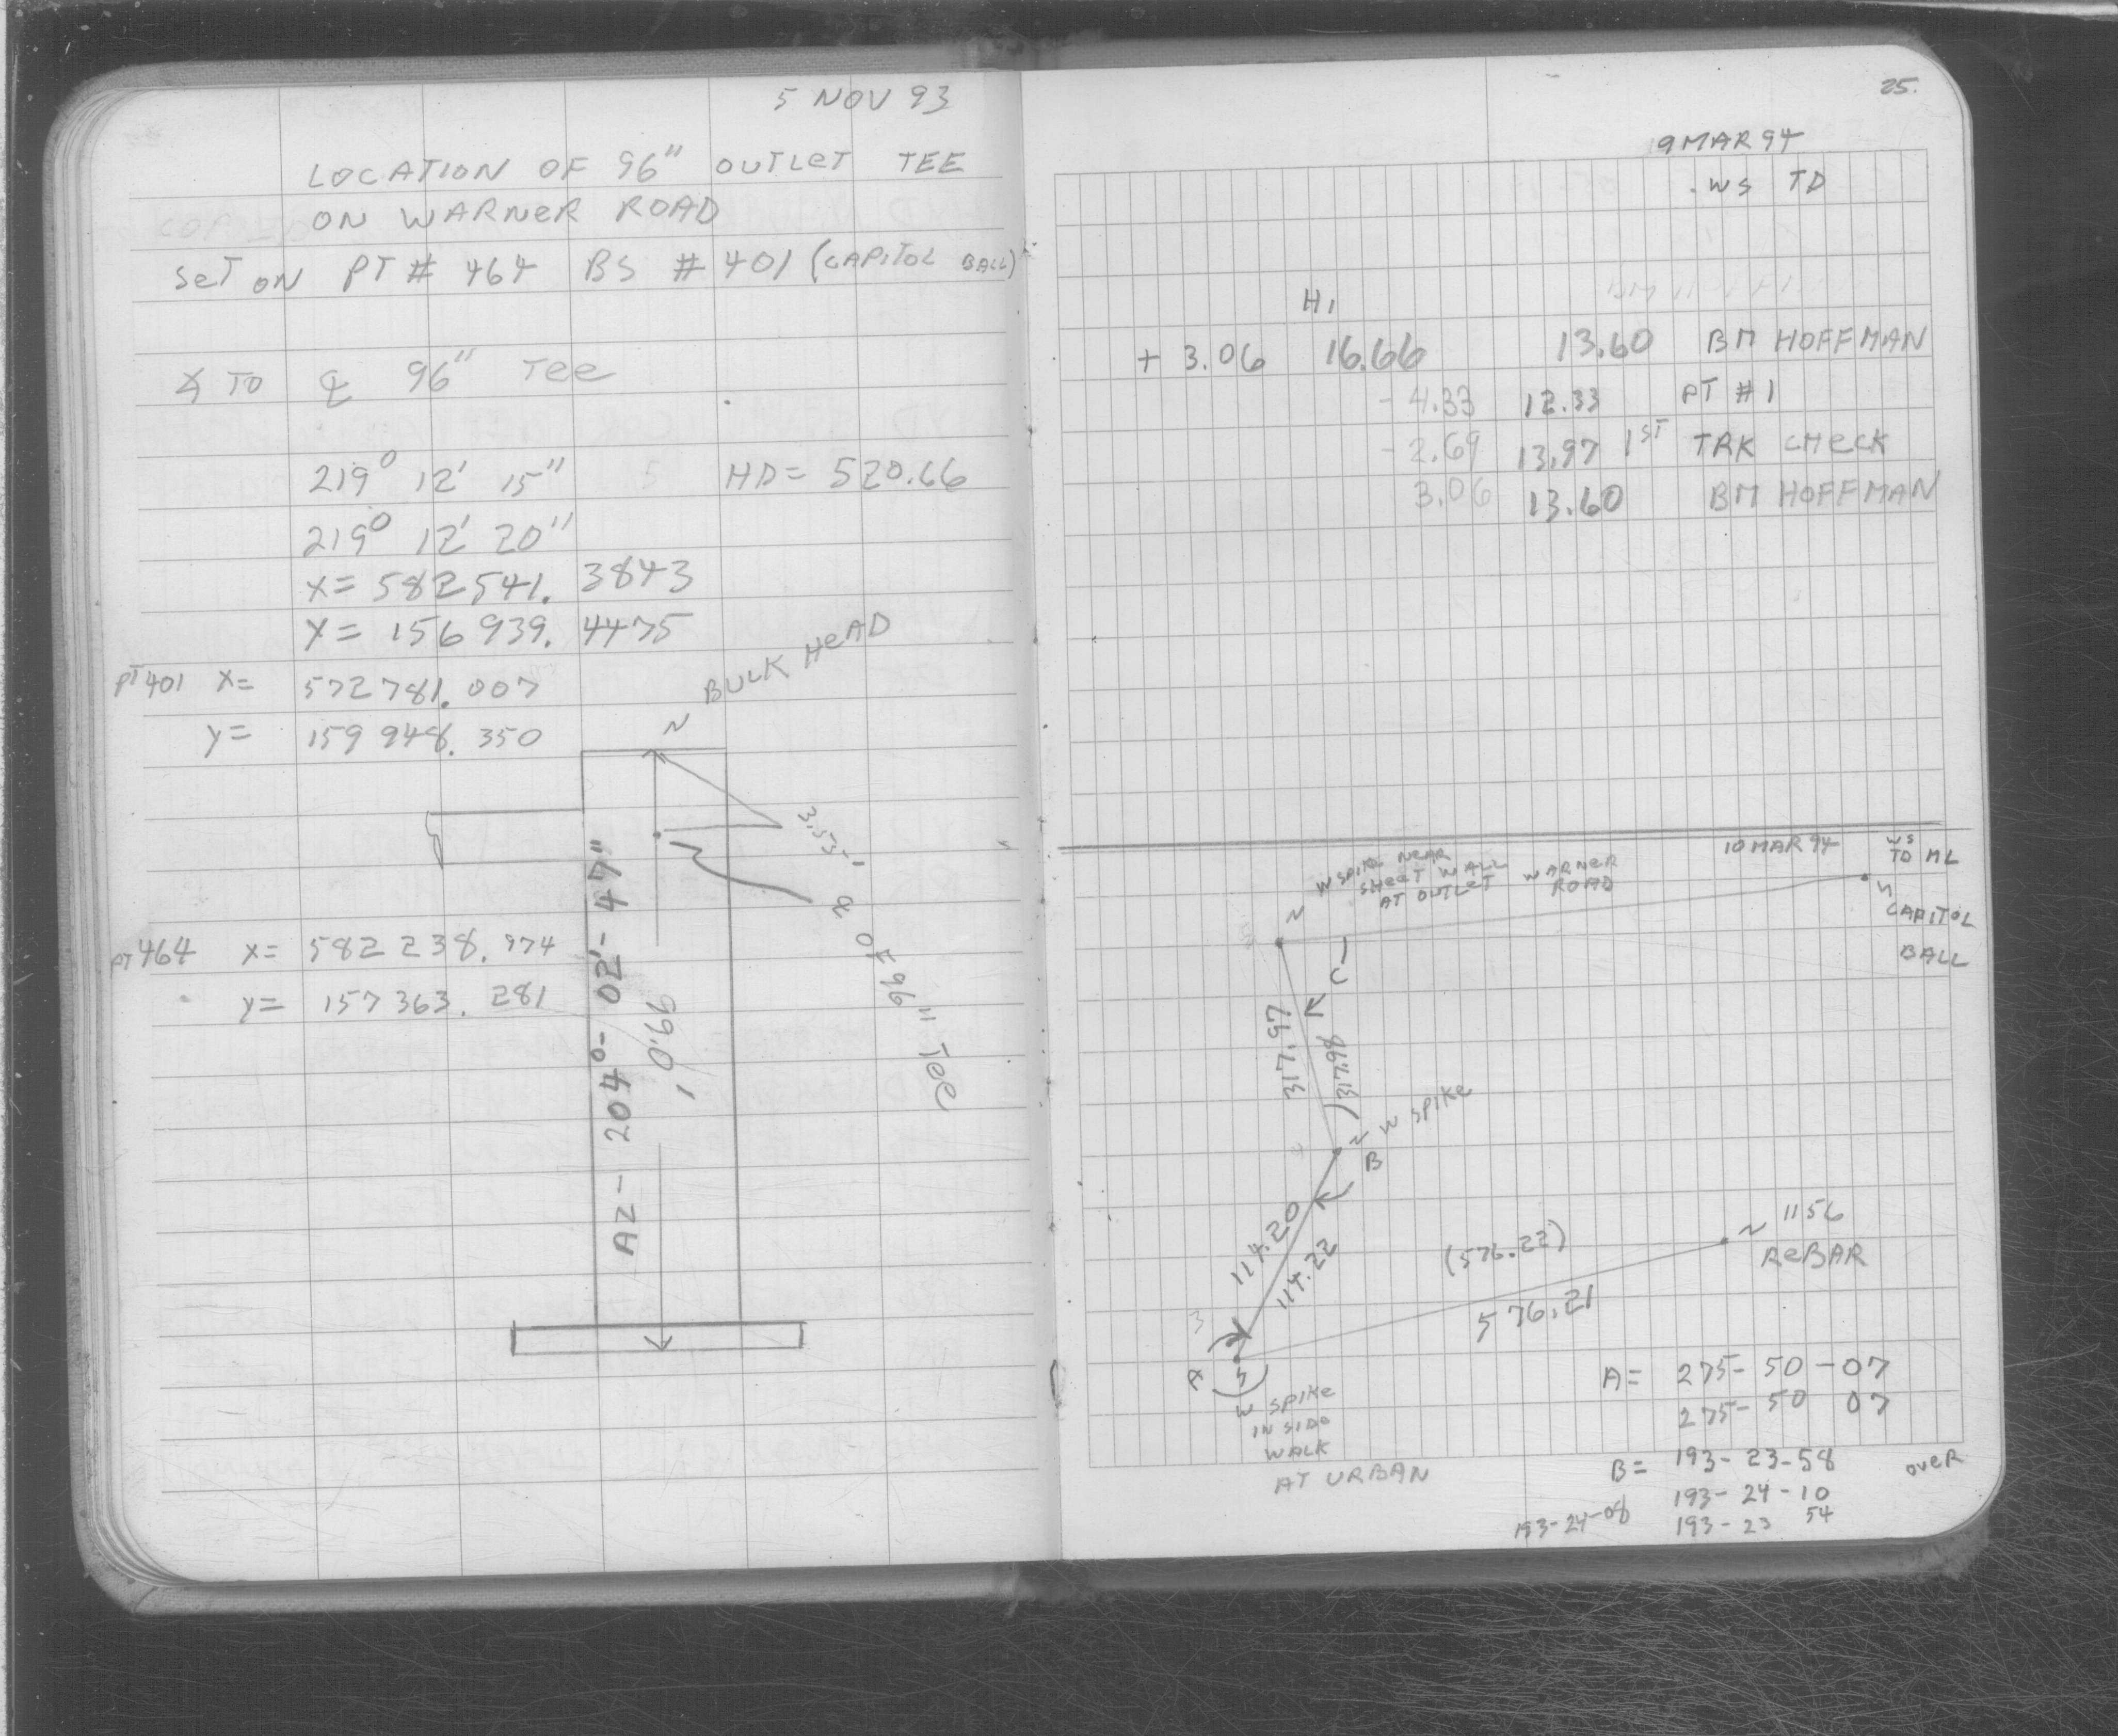 5 NOV 93
LOCATION OF 96" OUTLET TEE
ON WARNER ROAD
SET ON PT # 464 BS # 401 (CAPITOL BALL)
∡ TO ℄ 96" TEE
219° 12' 15" HD = 520.66
219° 12' 20"
X = 582541. 3843
Y = 156939. 4475
BULK HEAD
PT 401 X = 572781. 007
y = 159948. 350
3.55'
℄ OF 96" Tee
PT 464 X = 582238. 974
y = 157363. 281
AZ- 204°- 02'- 47"
99.0'
25.
9 MAR 94
WS TD
HI
+ 3.06 16.66 13.60 BM HOFFMAN
- 4.33 12.33 PT #1
- 2.69 13.97 1ST TRK CHECK
3.06 13.60 BM HOFFMAN
10 MAR 94 WS TD ML
W SPIKE NEAR
SHEET WALL
AT OUTLET
WARNER
ROAD
CAPITOL
BALL
C
317.97
317.98
W SPIKE
B
114.20
114.22
1156
ReBAR
(576.22)
576.21
3
A
W SPIKE
IN SIDE
WALK
AT URBAN
A = 275- 50 - 07
275- 50 07
B = 193- 23-58
193- 24 - 10
193-24-08 193- 23 54
OVER